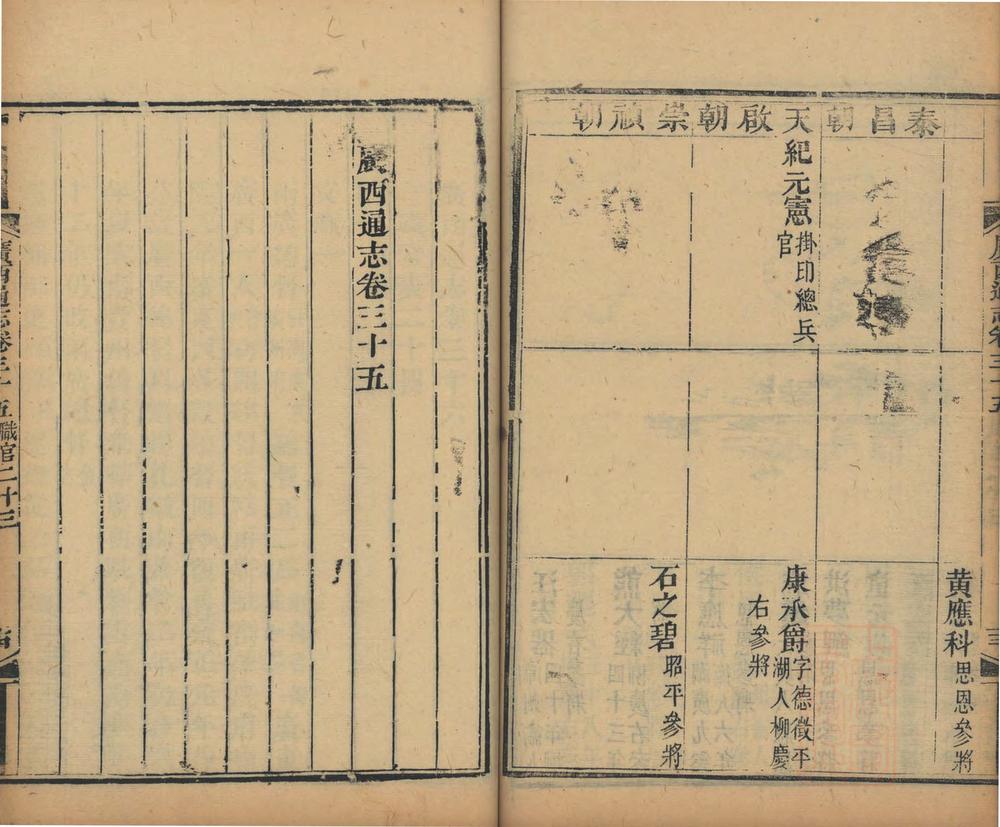 泰昌朝
黄應科思恩參將
天啟朝
紀元憲掛印總兵
官
康承爵字德徵平
湖人柳慶
右參將
崇禎朝
石之碧昭平參將
廣西通志卷三十五
廣西通志卷三十五職官二十三